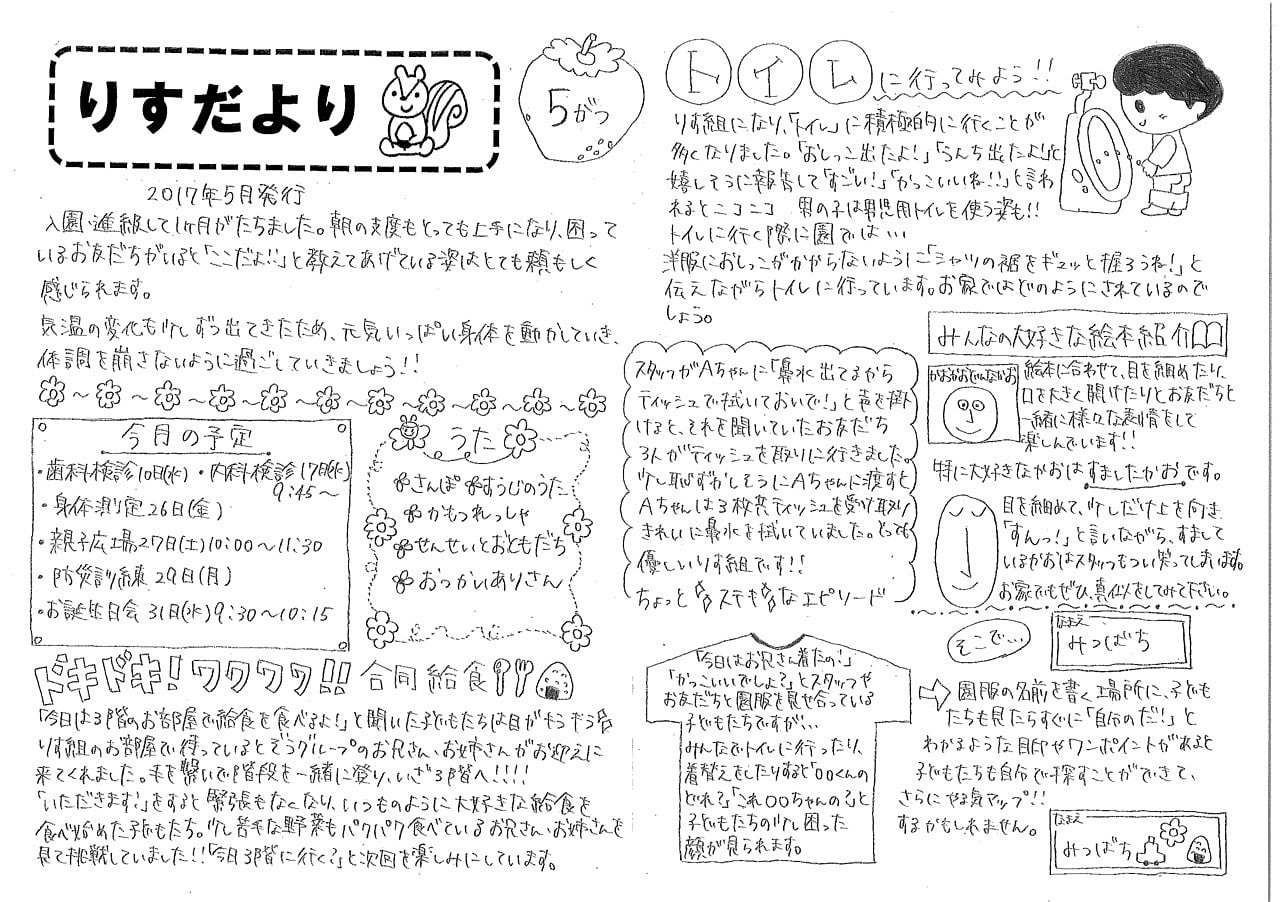 りすだより
5がつ
2017年5月発行
入園・進級して1ヶ月がたちました。朝の支度もとっても上手になり、困って
いるお友だちがいると「ここだよ!!」と教えてあげている姿はとても頼もしく
感じられます。
気温の変化も少しずつ出てきたため、元気いっぱい身体を動かしていき、
体調を崩さないように過ごしていきましょう!!
今月の予定
・歯科検診10日(水) ・内科検診17日(水)
9:45〜
・身体測定26日(金)
・親子広場27日(土)10:00〜11:30
・防災訓練 29日(月)
・お誕生日会 31日(水)9:30〜10:15
うた
さんぽ すうじのうた
かもつれっしゃ
せんせいとおともだち
おつかいありさん
ドキドキ!ワクワク!! 合同給食
「今日は3階のお部屋で給食を食べるよ!」と聞いた子どもたちは目がキラキラ
りす組のお部屋で待っているとぞうグループのお兄さん、お姉さんがお迎えに
来てくれました。手を繋いで階段を一緒に登り、いざ3階へ!!!!
「いただきます!」をすると緊張もなくなり、いつものように大好きな給食を
食べ始めた子どもたち。少し苦手な野菜もパクパク食べているお兄さん、お姉さんを
見て挑戦していました!!「今日3階に行く?」と次回を楽しみにしています。
トイレに行ってみよう!!
りす組になり、「トイレ」に積極的に行くことが
多くなりました。「おしっこ出たよ!」「うんち出たよ!」と
嬉しそうに報告して「すごい!」「かっこいいね!!」と言わ
れるとニコニコ 男の子は男児用トイレを使う姿も!!
トイレに行く際に園では…
洋服におしっこがかからないように「シャツの裾をギュッと握ろうね!」と
伝えながらトイレに行っています。お家ではどのようにされているので
しょう。
スタッフがAちゃんに「鼻水出てるから
ティッシュで拭いておいで!」と声を掛
けると、それを聞いていたお友だち
3人がティッシュを取りに行きました。
少し恥ずかしそうにAちゃんに渡すと
Aちゃんは3枚共ティッシュを受け取り
きれいに鼻水を拭いていました。とっても
優しいりす組です!!
ちょっとステキなエピソード
みんなの大好きな絵本紹介
かおかおどんなかお
絵本に合わせて、目を細めたり、
口を大きく開けたりとお友だちと
一緒に様々な表情をして
楽しんでいます!!
特に大好きなかおはすましたかおです。
目を細めて、少しだけ上を向き
「すんっ!」と言いながら、すまして
いるかおはスタッフもつい笑ってしまいます。
お家でもぜひ、真似をしてみて下さい。
「今日はお兄さん着たの!」
「かっこいいでしょ?」とスタッフや
お友だちと園服を見せ合っている
子どもたちですが…
みんなでトイレに行ったり、
着替えをしたりすると「○○くんの
どれ?」「これ○○ちゃんの?」と
子どもたちの少し困った
顔が見られます。
そこで…
なまえ
みつばち
園服の名前を書く場所に、子ども
たちも見たらすぐに「自分のだ!」と
わかるような目印やワンポイントがあると
子どもたちも自分で探すことができて、
さらにやる気アップ!!
するかもしれません。
なまえ
みつばち